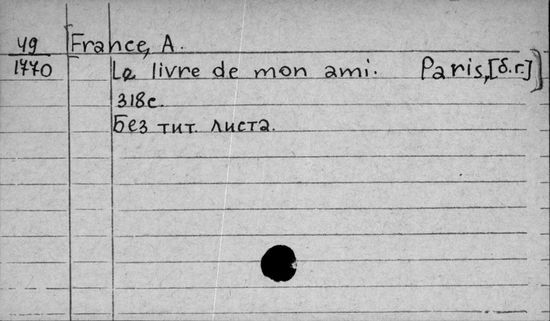 49
1770
[France, A.
Le livre de mon ami. Paris, [б.г.]]
318с.
Без тит. листа.